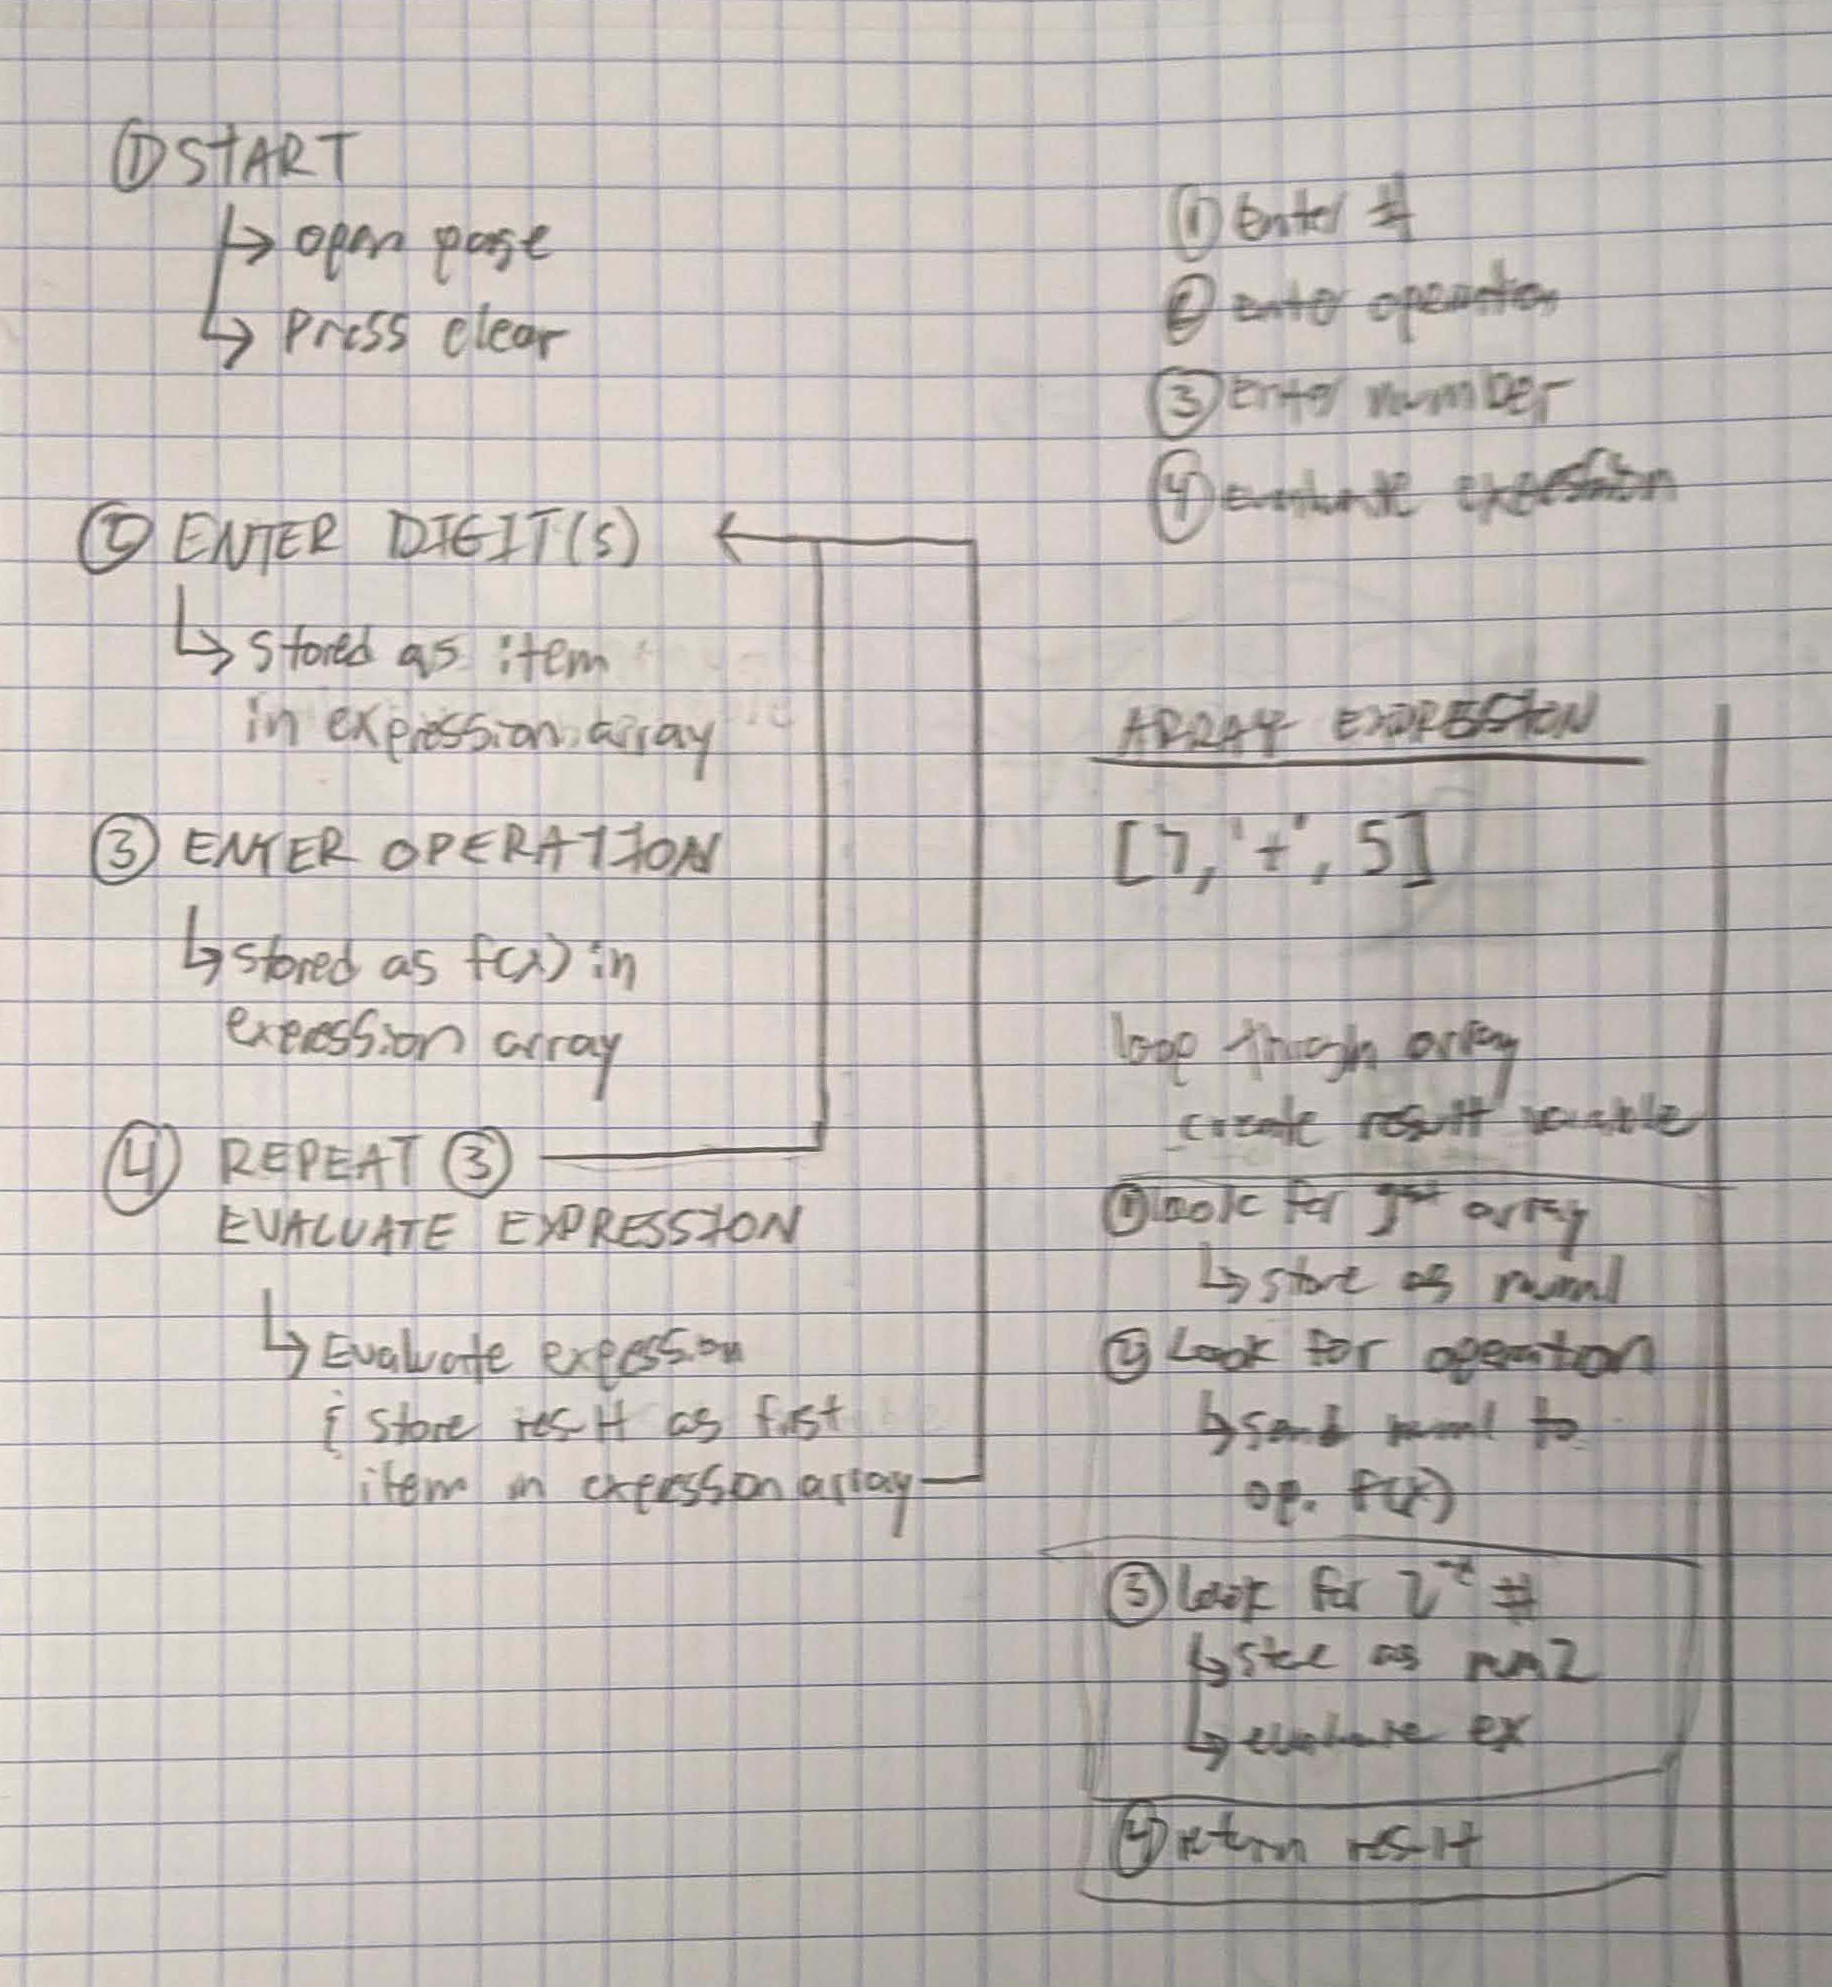 ① START
↳ open page
↳ press clear
② ENTER DIGIT(S)
↳ stored as item
in expression array
③ ENTER OPERATION
↳ stored as f(x) in
expression array
④ REPEAT ③
EVALUATE EXPRESSION
↳ Evaluate expression
& store result as first
item in expression array
① Enter #
② enter operation
③ Enter number
④ evaluate expression
ARRAY EXPRESSION
[7, '+', 5]
loop through array
create result variable
① look for 1st array
↳ store as num1
② Look for operation
↳ send num1 to
op. f(x)
③ look for 2nd #
↳ store as num2
↳ evaluate ex
④ return result